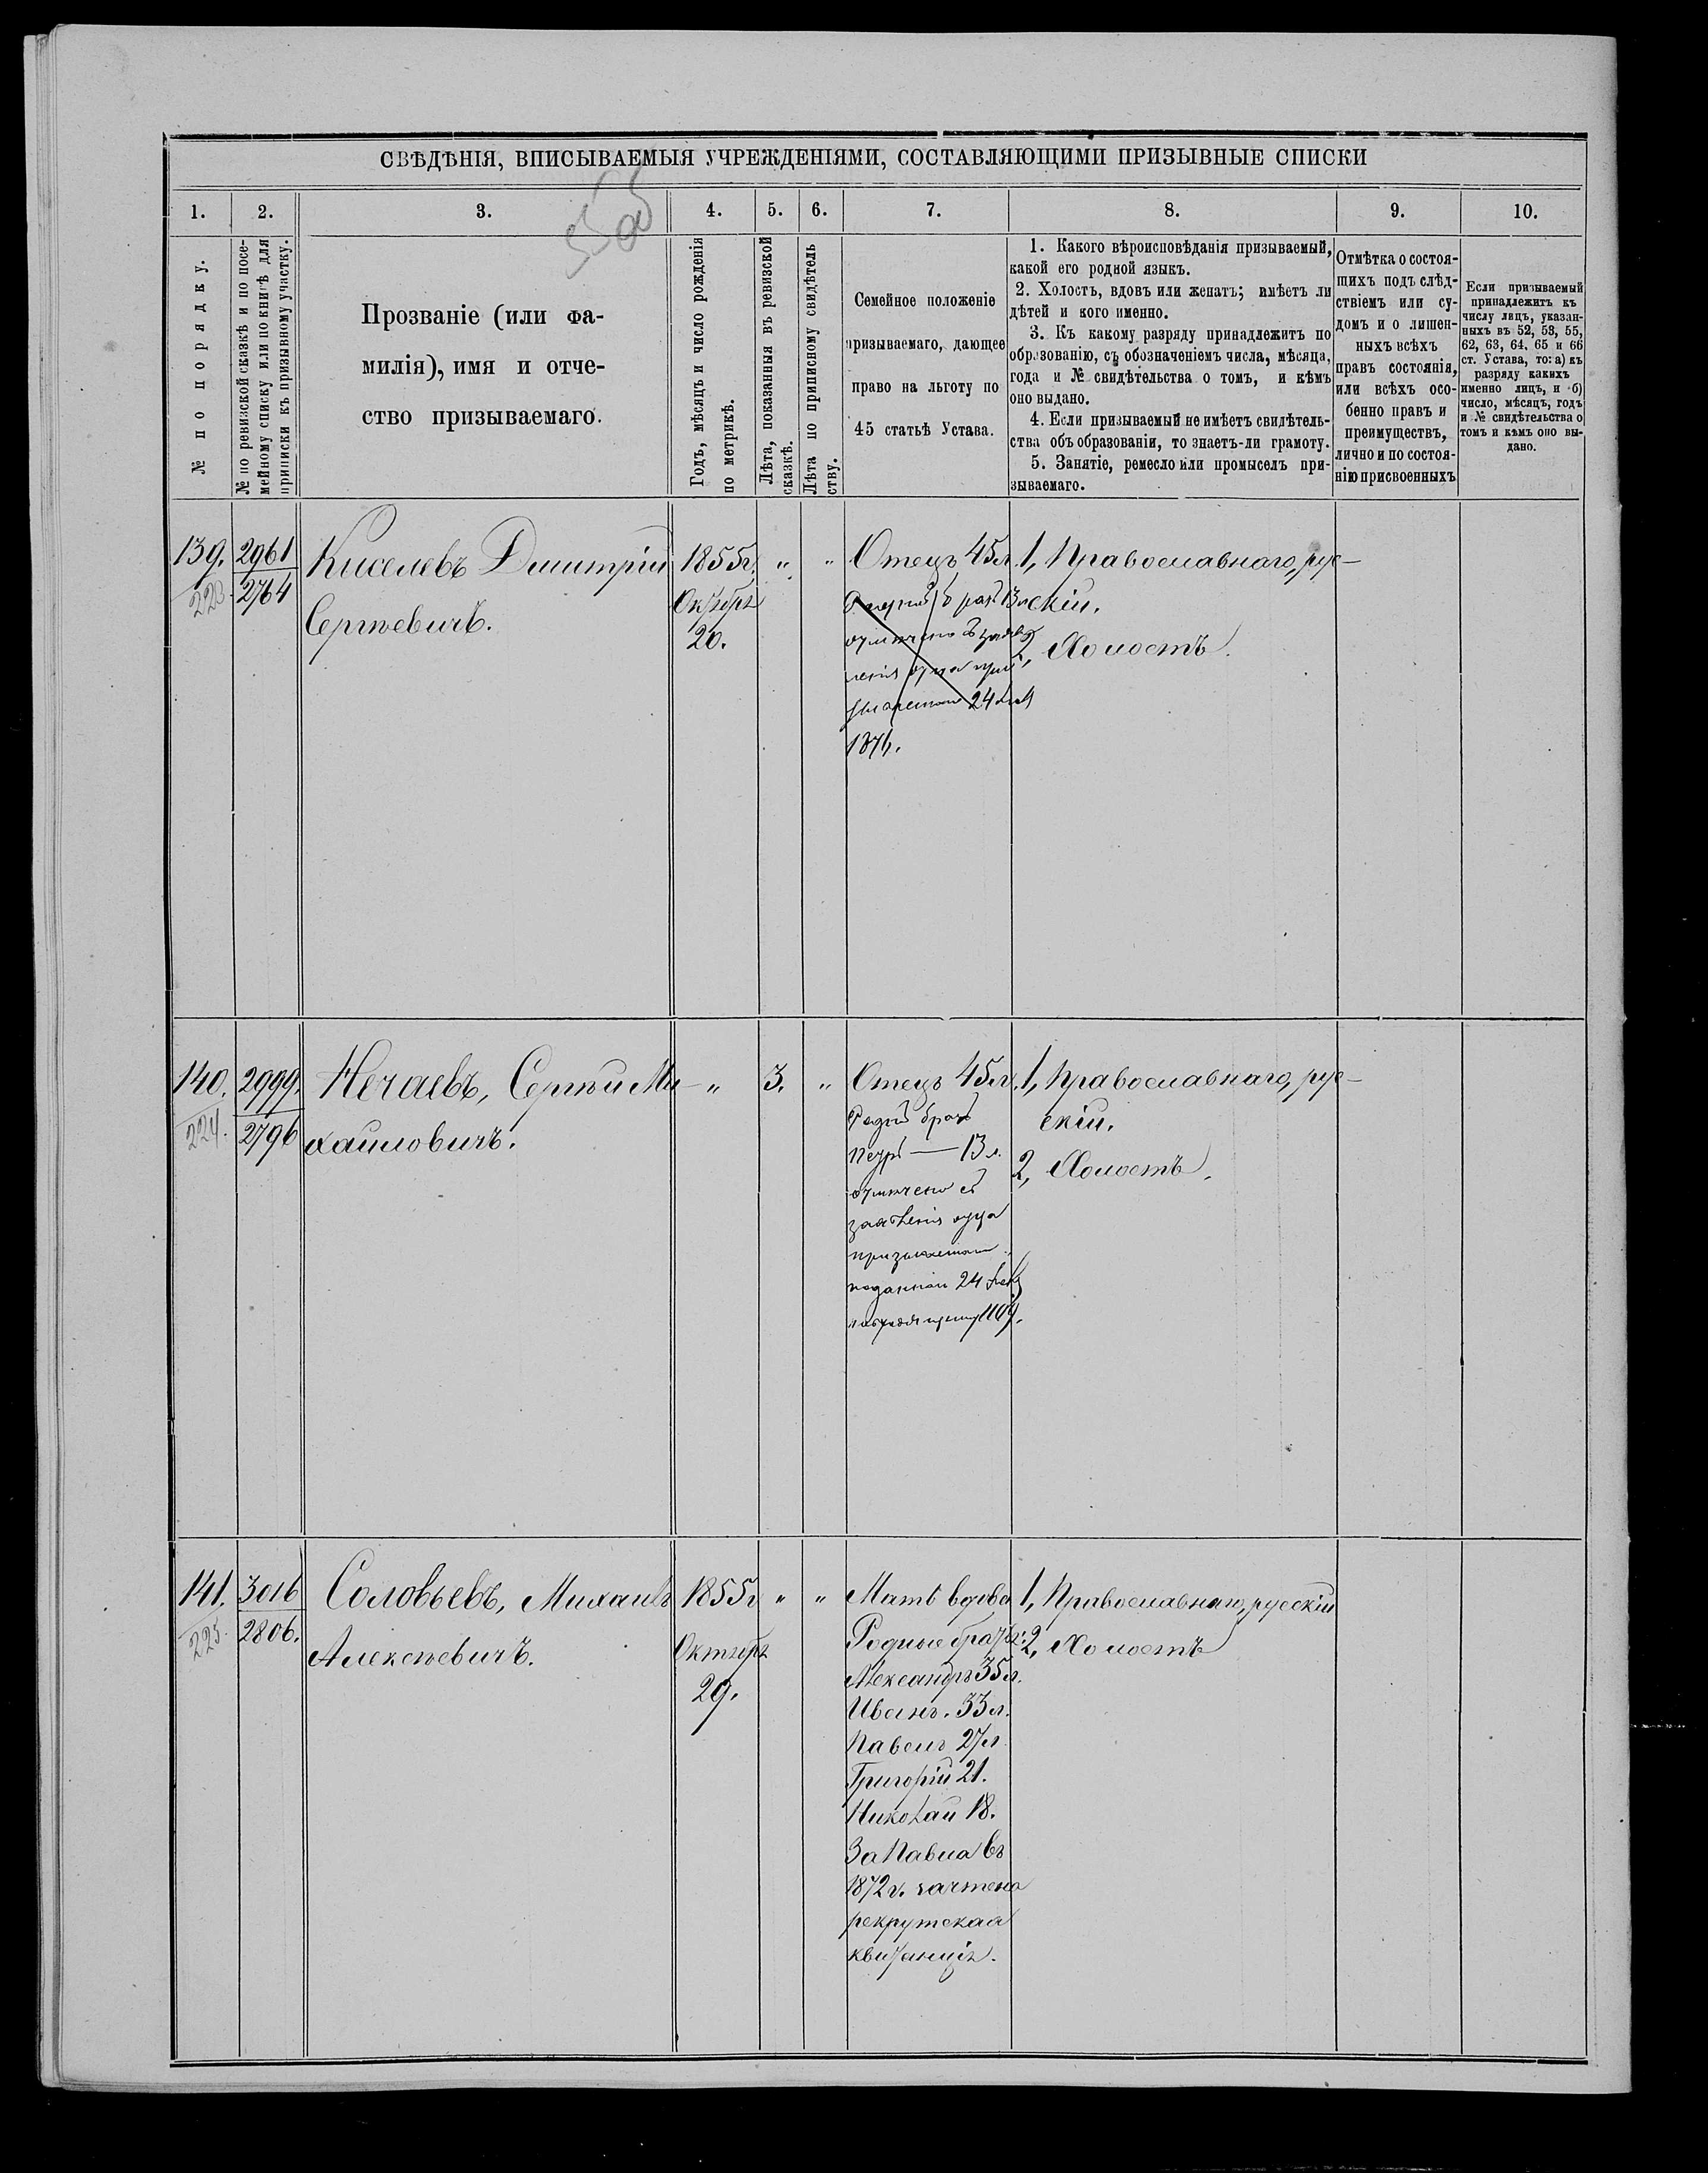 СВѢДѢНІЯ, ВПИСЫВАЕМЫЯ УЧРЕЖДЕНІЯМИ, СОСТАВЛЯЮЩИМИ ПРИЗЫВНЫЕ СПИСКИ
1.
2.
3.
4.
5.
6.
7.
8.
9.
10.
№ по порядку.
№ по ревизской сказкѣ и по посе-
мейному списку или по книгѣ для
приписки къ призывному участку.
Прозваніе (или фа-
милія), имя и отче-
ство призываемаго.
Годъ, мѣсяцъ и число рожденія
по метрикѣ.
Лѣта, показанныя въ ревизской
сказкѣ.
Лѣта по приписному свидѣтель
ству.
Семейное положеніе
призываемаго, дающее
право на льготу по
45 статьѣ Устава.
1. Какого вѣроисповѣданія призываемый,
какой его родной языкъ.
2. Холостъ, вдовъ или женатъ; имѣетъ ли
дѣтей и кого именно.
3. Къ какому разряду принадлежитъ по
образованію, съ обозначеніемъ числа, мѣсяца,
года и № свидѣтельства о томъ, и кѣмъ
оно выдано.
4. Если призываемый не имѣетъ свидѣтель-
ства объ образованіи, то знаетъ-ли грамоту.
5. Занятіе, ремесло или промыселъ при-
зываемаго.
Отмѣтка о состоя-
щихъ подъ слѣд-
ствіемъ или су-
домъ и о лишен-
ныхъ всѣхъ
правъ состоянія,
или всѣхъ осо-
бенно правъ и
преимуществъ,
лично и по состоя-
нію присвоенныхъ
Если призываемый
принадлежитъ къ
числу лицъ, указан-
ныхъ въ 52, 53, 55,
62, 63, 64, 65 и 66
ст. Устава, то: а) къ
разряду какихъ
именно лицъ, и б)
число, мѣсяцъ, годъ
и № свидѣтельства о
томъ и кѣмъ оно вы-
дано.
139.
223.
2961
2764
Киселевъ Дмитрій
Сергѣевичъ.
1855г.
Октября
20.
"
"
Отецъ 45л.
отмѣчено
24
1876.
1, Православнаго, рус-
скій.
2, Холостъ.
140.
224.
2999.
2796
Нечаевъ, Сергѣй Ми-
хайловичъ.
"
3.
"
Отецъ 45л.
Родн братъ
Петръ — 13 л.
отмѣчено съ
заявленія отца
призываемаго
поданнаго 24
1, Православнаго, рус-
скій.
2, Холостъ.
141.
225.
3016
2806.
Соловьевъ, Михаилъ
Алексѣевичъ.
1855г
Октября
29.
"
"
Мать вдова
Родные братья:
Александръ 35л.
Иванъ. 33л.
Павелъ 27л
Григорій 21.
Николай 18.
За Павла въ
1872г. зачтена
рекрутская
квитанція.
1, Православнаго, русскій
2, Холостъ